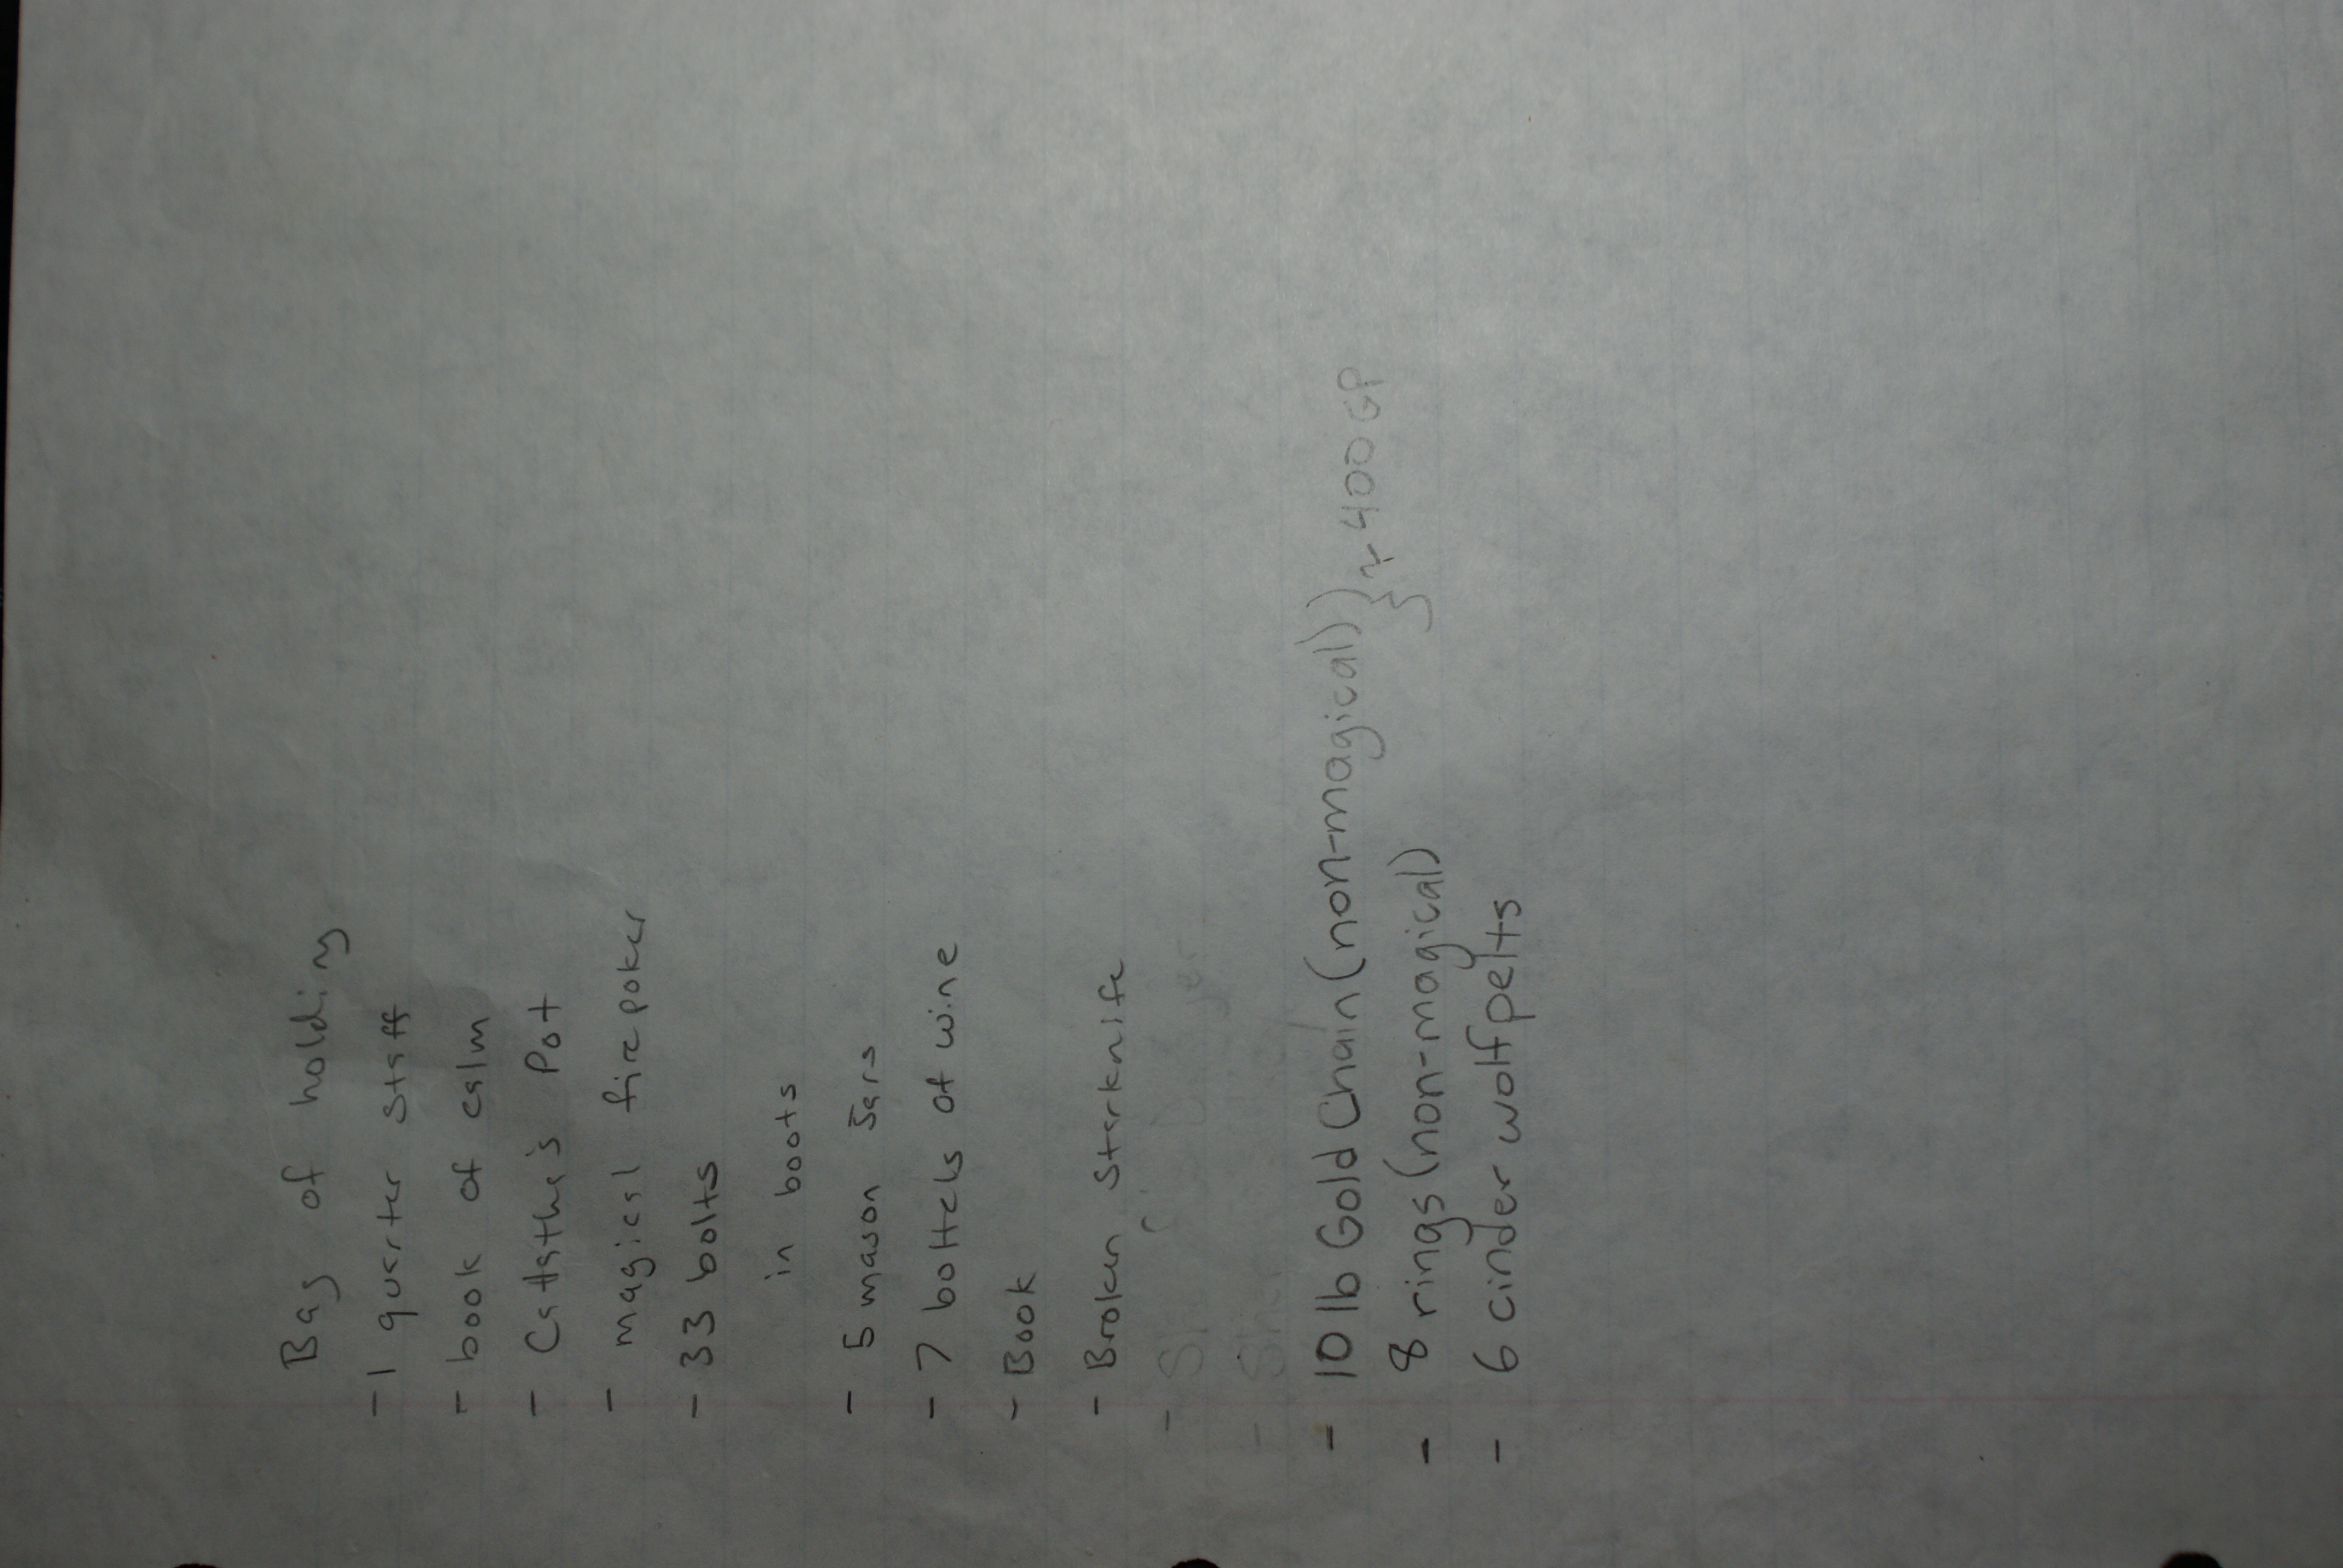 Bag of holding
- 1 quarter staff
- book of calm
- Cattathe's Pot
- magical fire poker
- 33 bolts
in boots
- 5 mason Jars
- 7 bottels of wine
- Book
- Broken Starknife
- 10 lb Gold Chain (non-magical) } ~ 400 GP
- 8 rings (non-magical)
- 6 cinder wolf pelts